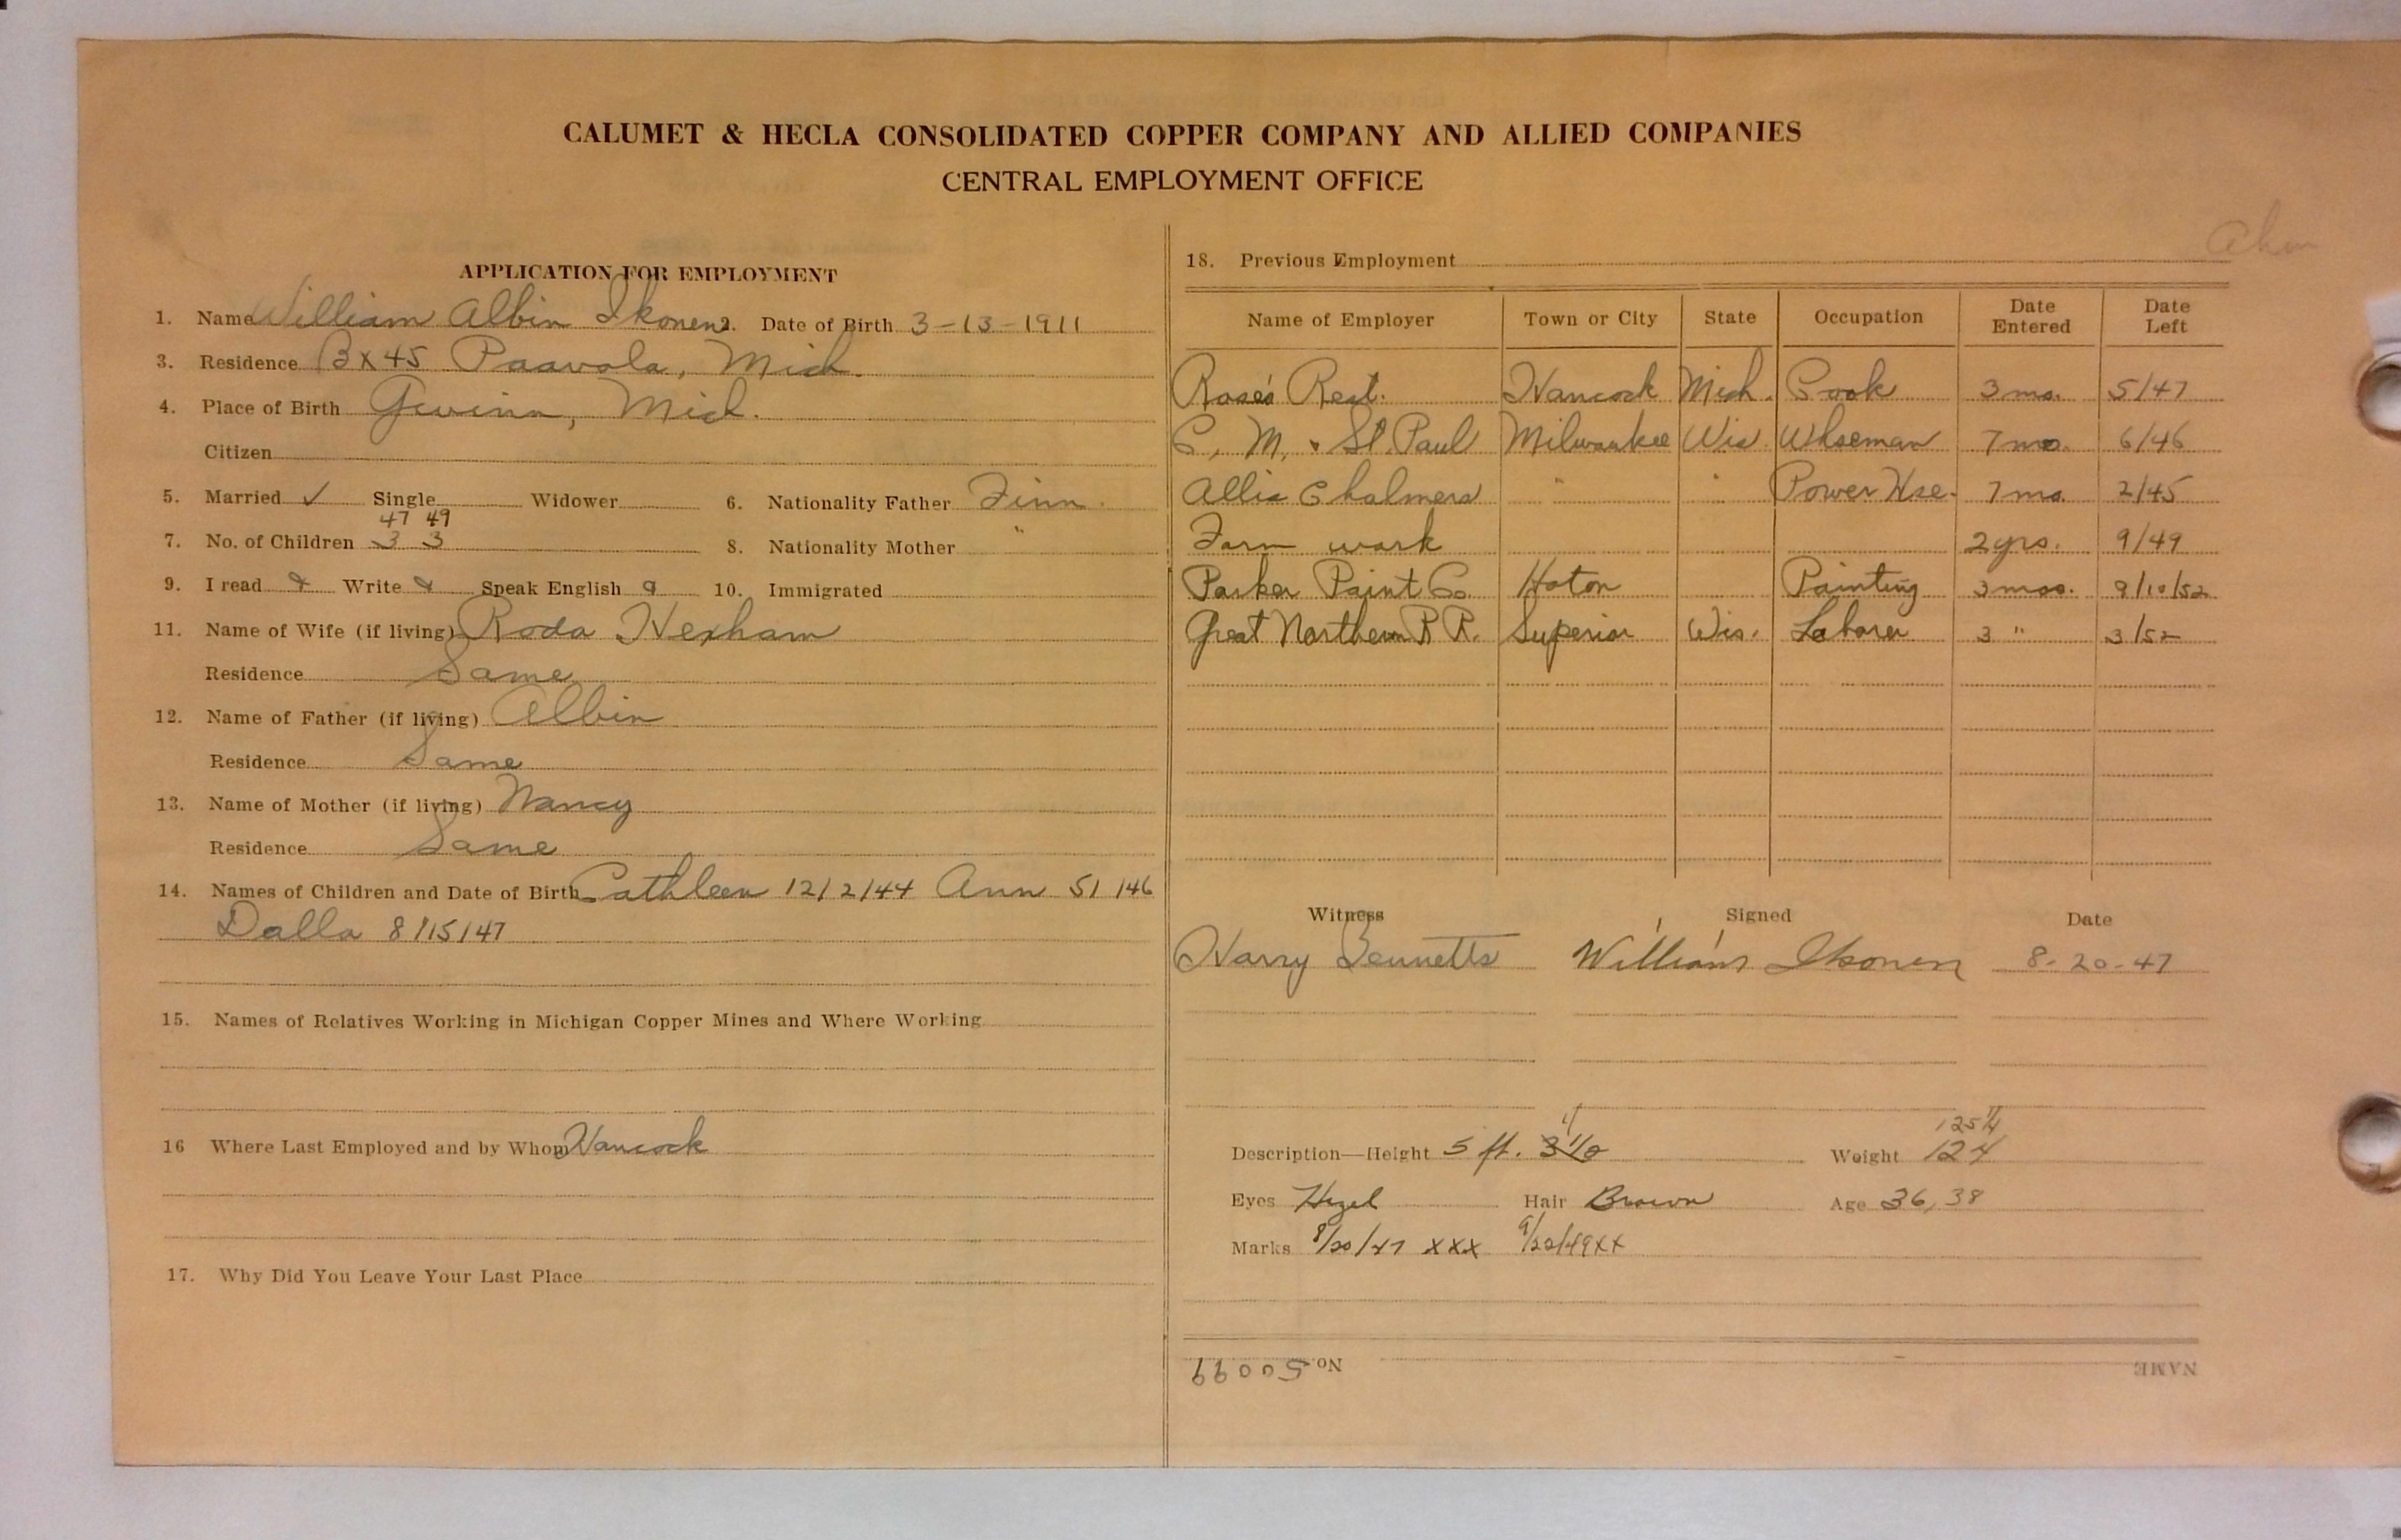 CALUMET & HECLA CONSOLIDATED COPPER COMPANY AND ALLIED COMPANIES
CENTRAL EMPLOYMENT OFFICE
APPLICATION FOR EMPLOYMENT
1. Name William Albin Ikonen 2. Date of Birth 3-13-1911
3. Residence Bx 45 Paavola, Mich.
4. Place of Birth Gwinn, Mich.
Citizen
5. Married ✓ Single Widower 6. Nationality Father Finn
47 49
7. No. of Children 3 3 8. Nationality Mother "
9. I read Write Speak English 10. Immigrated
11. Name of Wife (if living) Roda Hexham
Residence Same
12. Name of Father (if living) Albin
Residence Same
13. Name of Mother (if living) Nancy
Residence Same
14. Names of Children and Date of Birth Cathleen 12/2/44 Ann 5/ /46
Dalla 8/15/47
15. Names of Relatives Working in Michigan Copper Mines and Where Working
16 Where Last Employed and by Whom Hancock
17. Why Did You Leave Your Last Place
18. Previous Employment
Name of Employer Town or City State Occupation Date Entered Date Left
Rose's Rest. Hancock Mich. Cook 3 mo. 5/47
C. M. & St. Paul Milwaukee Wis Whseman 7 mo. 6/46
Allis Chalmers " " Power Hse. 7 mo. 2/45
Farm work 2 yrs. 9/49
Parker Paint Co. Hoton Painting 3 mos. 9/10/52
Great Northern R R. Superior Wis. Laborer 3 " 3/52
Witness Signed Date
Harry Bennetts William Ikonen 8-20-47
125 1/4
Description—Height 5 ft. Weight 124
Eyes Hazel Hair Brown Age 36, 38
Marks 8/20/47 XXX 9/20/49 XX
No. 50099 NAME